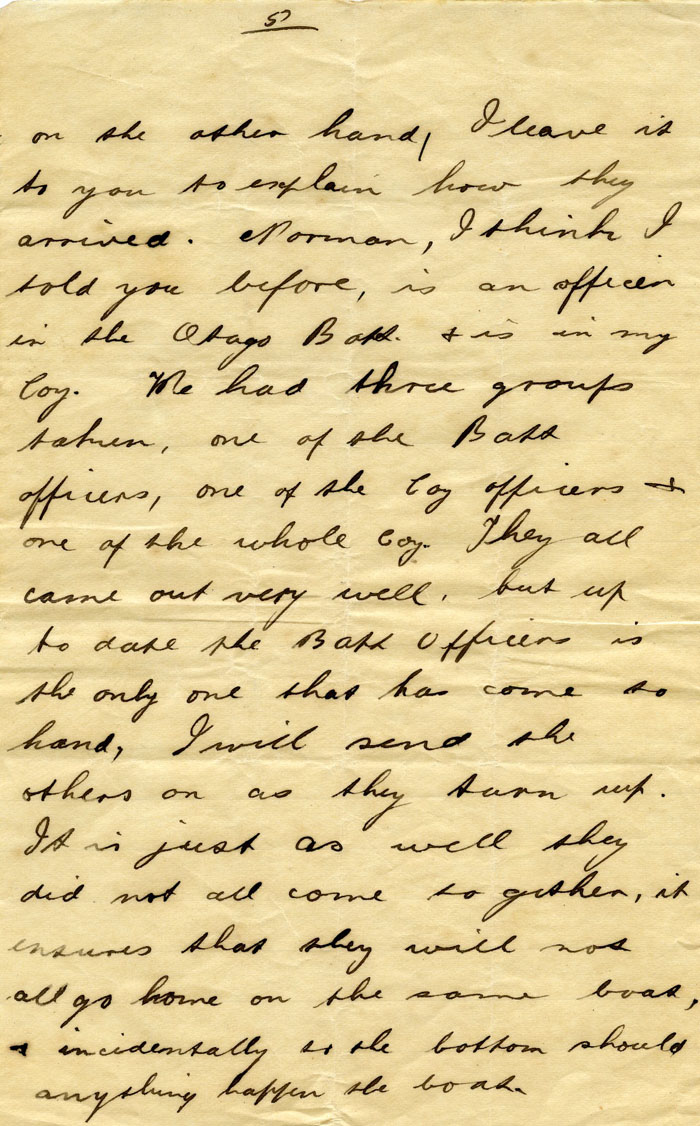 5
on the other hand, I leave it
to you to explain how they
arrived. Norman, I think I
told you before, is an officer
in the Otago Batt. & is in my
Coy. We had three groups
taken, one of the Batt
officers, one of the Coy officers &
one of the whole Coy. They all
came out very well, but up
to date the Batt Officers is
the only one that has come to
hand, I will send the
others on as they turn up.
It is just as well they
did not all come to gether, it
ensures that they will not
all go home on the same boat,
& incidentally to the bottom should
anything happen the boat.